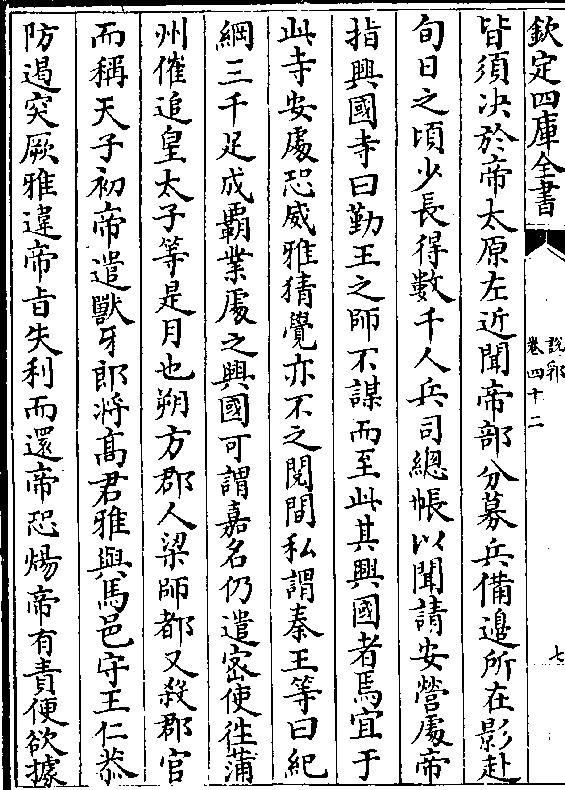 欽定四庫全書
說郛
卷四十二
七
皆須决於帝太原左近聞帝部分募兵備邊所在影赴
旬日之頃少長得數千人兵司總帳以聞請安營處帝
指興國寺曰勤王之師不謀而至此其興國者焉宜于
此寺安處恐威雅猜覺亦不之閱間私謂秦王等曰紀
綱三千足成覇業處之興國可謂嘉名仍遣宻使徃蒲
州催追皇太子等是月也朔方郡人梁師都又殺郡官
而稱天子初帝遣獸牙郎將髙君雅與馬邑守王仁恭
防遏突厥雅違帝㫖失利而還帝恐煬帝有責便欲據